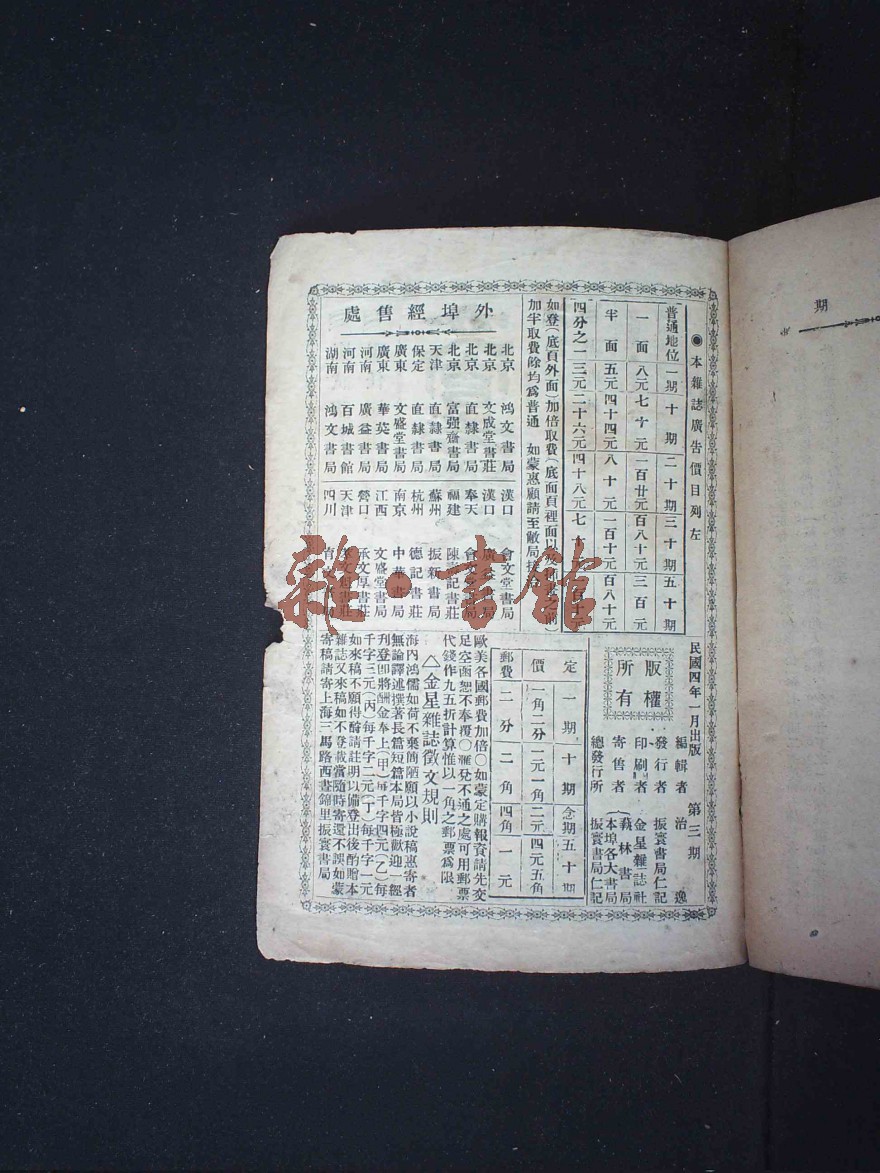 期
●本雜誌廣告價目列左
普通地位 一期 十期 二十期 三十期 五十期
一面 八元 七十元 一百廿元 百八十元 三百元
半面 五元 四十四元 八十元 一百十元 百八十元
四分之一 三元 二十六元 四十八元
如登(底頁外面)加倍取費(底面頁裡面以及
加半取費餘均爲普通 如蒙惠顧請至敝局
外埠經售處
北京 鴻文書局
北京 文成堂書莊
北京 直隸書局
北京 富强齋書局
天津 直隸書局
保定 直隸書局
廣東 文盛堂書局
廣東 華英書局
河南 廣益書局
河南 百城書館
湖南 鴻文書局
漢口 會文堂書局
漢口 廣益書局
奉天 會文堂書局
福建 陳記書莊
蘇州 振新書局
杭州 德記書莊
南京 中華書局
江西 文盛堂書局
營口 承文厚書莊
天津 書莊
四川 書局
民國四年一月出版 第三期
版權所有
編輯者 治逸
發行者 振寰書局仁記
印刷者 金星雜誌社
寄售者 蓺林書局 本埠各大書局
總發行所 振寰書局仁記
定價 一期 十期 念期 五十期
一角二分 一元一角 二元 四元五角
郵費 二分 二角 四角 一元
歐美各國郵費加倍○如蒙定購報資請先交
足空函恕不奉覆○滙兌不通之處可用郵票
代錢作九五折計算惟以一角之郵票爲限
△金星雜誌徵文規則
海內鴻儒如荷不棄簡陋願以小說稿惠寄者
無論譯述撰著長篇短篇本局皆極歡迎一經
刋登卽將酬金奉上(甲)每千字四元(乙)每
千字三元(丙)每千字二元(丁)每千字一元
如來稿不願得酧請註明以備登出後酌贈本
雜誌又來稿如不登載當隨時寄還不誤如蒙
寄稿請寄上海三馬路西晝錦里振寰書局
雜·書館